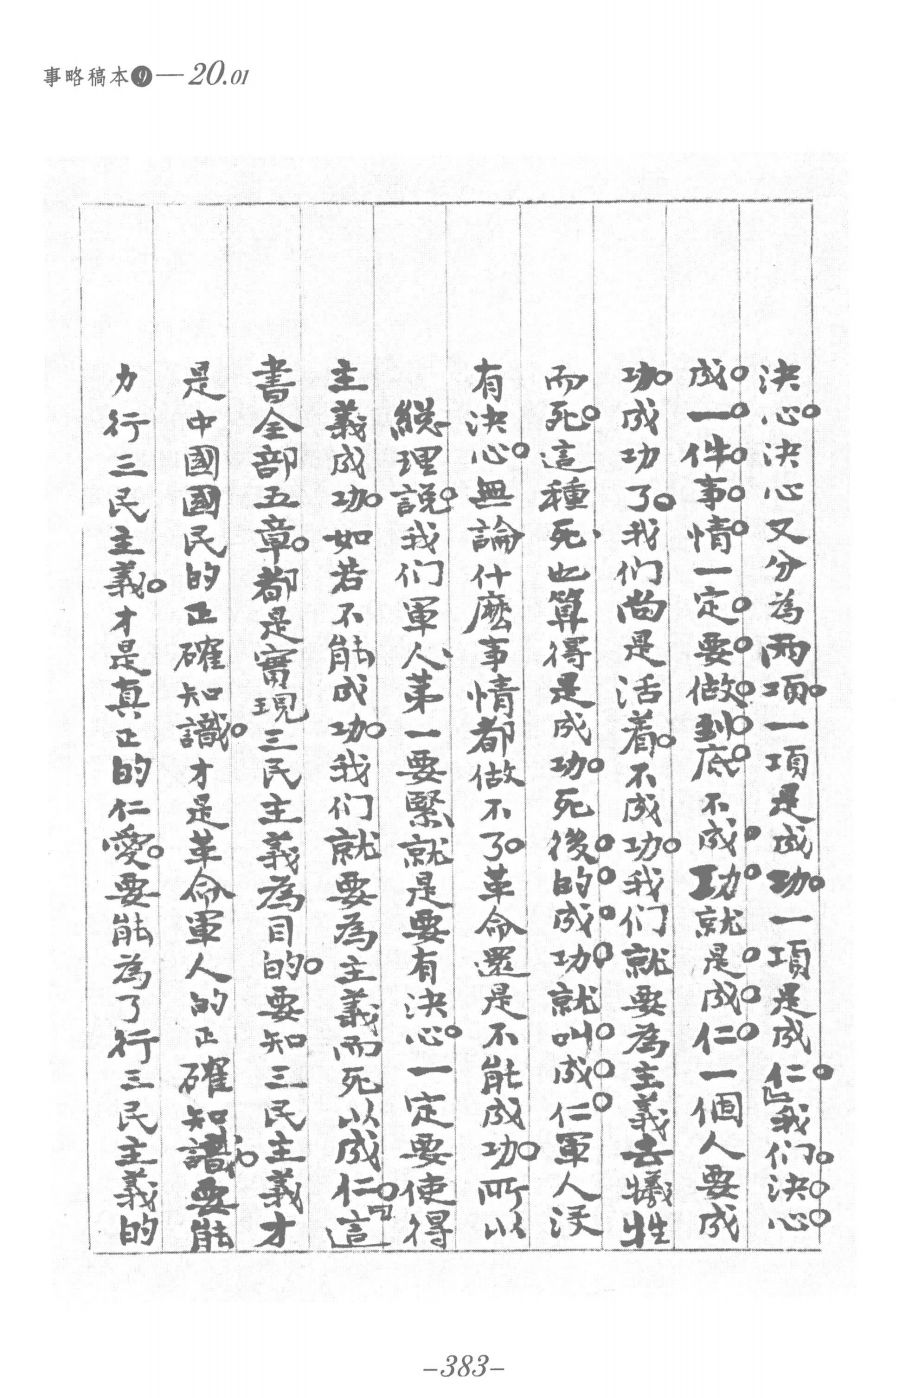 事略稿本❾—20.01
決心。決心又分為兩項。一項是成功。一項是成仁。」我们決心
成一件事情一定要做到底不成功就是成仁一個人要成
功。成功了。我们尚是活着。不成功。我们就要為主義去犧牲
而死。這種死、也算得是成功。死後的成功就叫成仁軍人没
有決心。無論什麽事情都做不了。革命還是不能成功。所以
総理説。我们軍人、第一要緊、就是要有決心。一定要使得
主義成功。如若不能成功。我们就要為主義而死以成仁。」這
書全部五章。都是實現三民主義為目的。要知三民主義才
是中國國民的正確知識。才是革命軍人的正確知識。要能
力行三民主義。才是真正的仁愛。要能為了行三民主義的
-383-